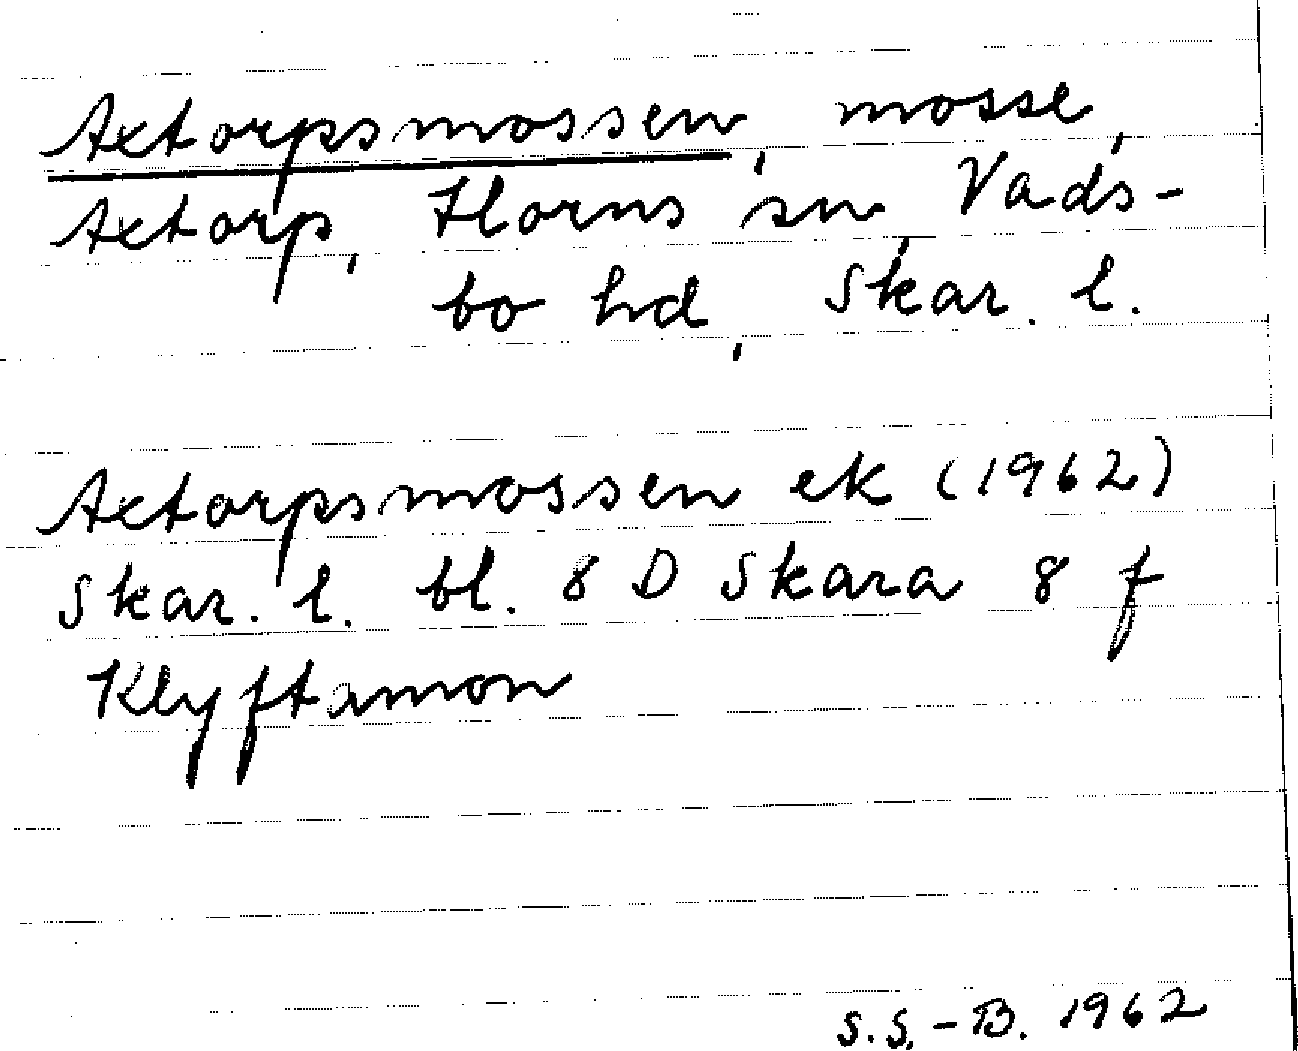 Axtorpsmossen, mosse,
Axtorp, Horns sn, Vads-
bo hd, Skar. l.
Axtorpsmossen ek (1962)
Skar. l. bl. 8 D Skara 8 f
Klyftamon
S.S.-B. 1962